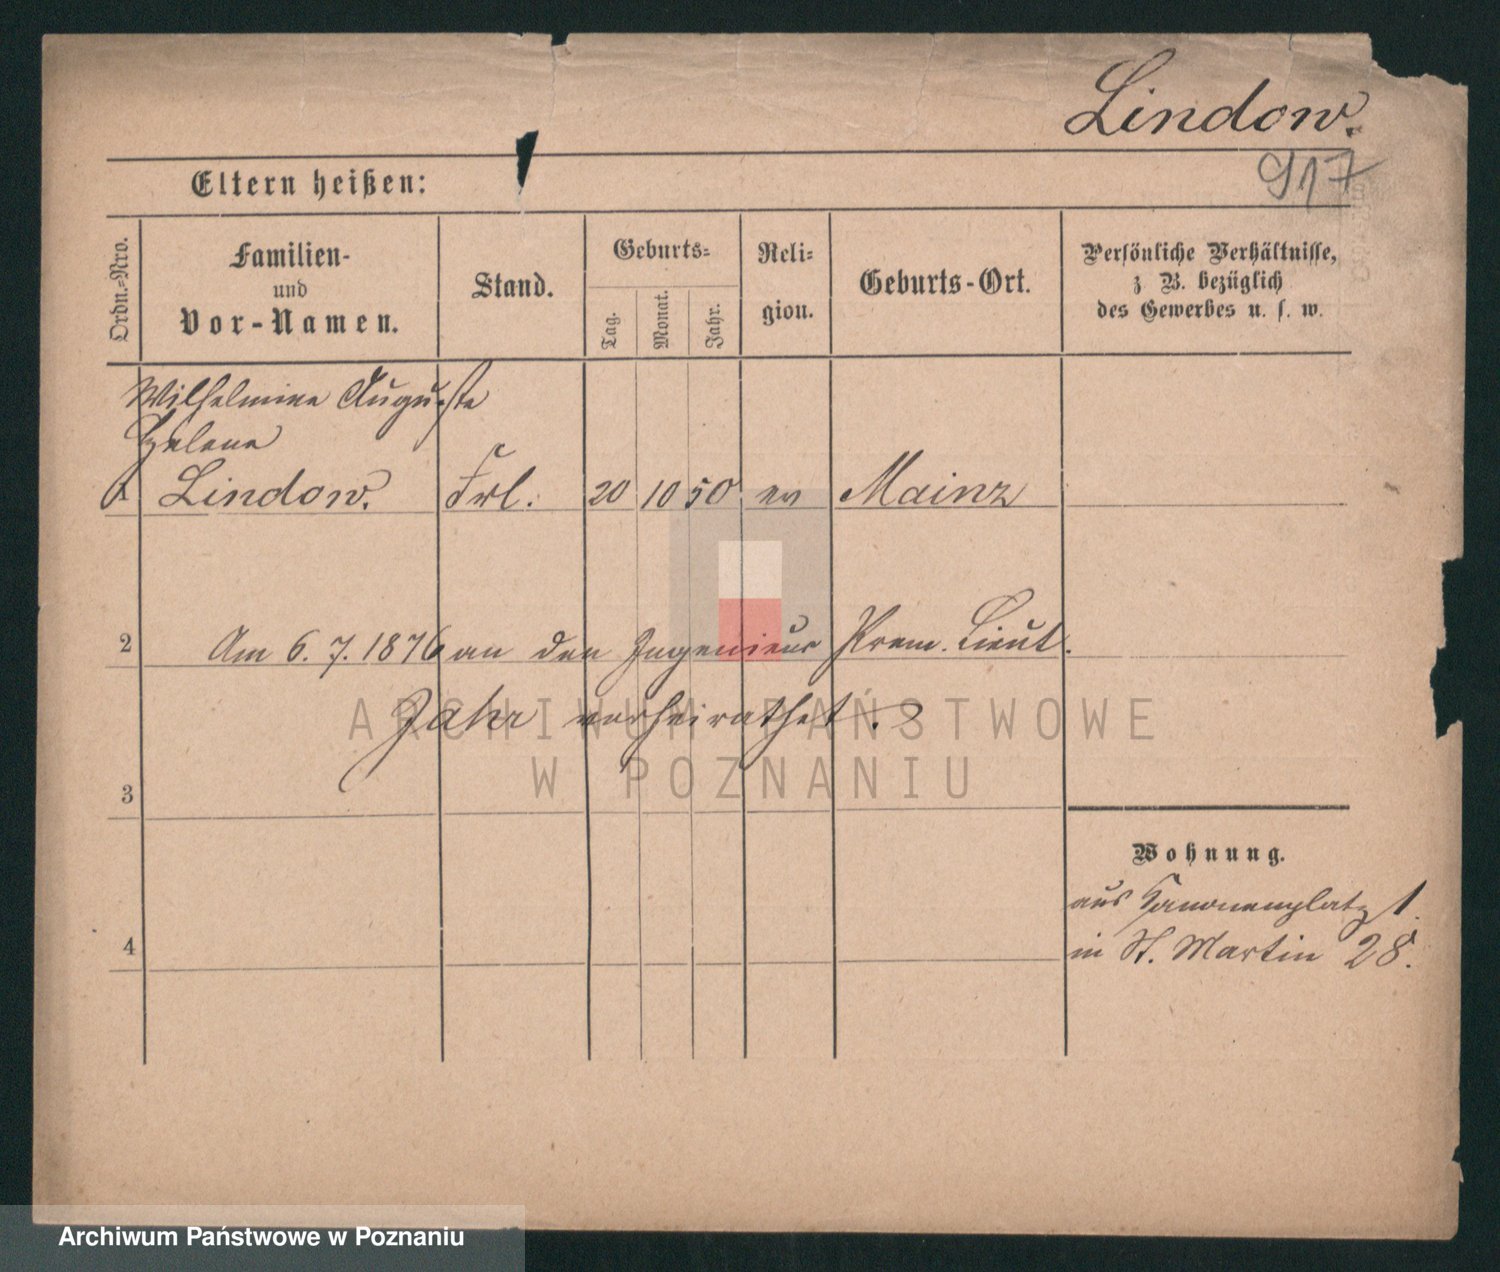 Lindow.
917
Eltern heißen:
Ordn.=Nro.
Familien-
und
Vor-Namen.
Stand.
Geburts=
Tag.
Monat.
Jahr.
Reli=
gion.
Geburts-Ort.
Persönliche Verhältnisse,
z B. bezüglich
des Gewerbes u. s. w.
Wilhelmine Auguste
Helene
1 Lindow. Frl. 20 10 50 ev Mainz
2 Am 6. 7. 1876 an den Ingenieur Prem. Lieut.
Jahr verheirathet.
ARCHIWUM PAŃSTWOWE
W POZNANIU
3
Wohnung.
aus Kanonenplatz 1.
in St. Martin 28.
4
Archiwum Państwowe w Poznaniu